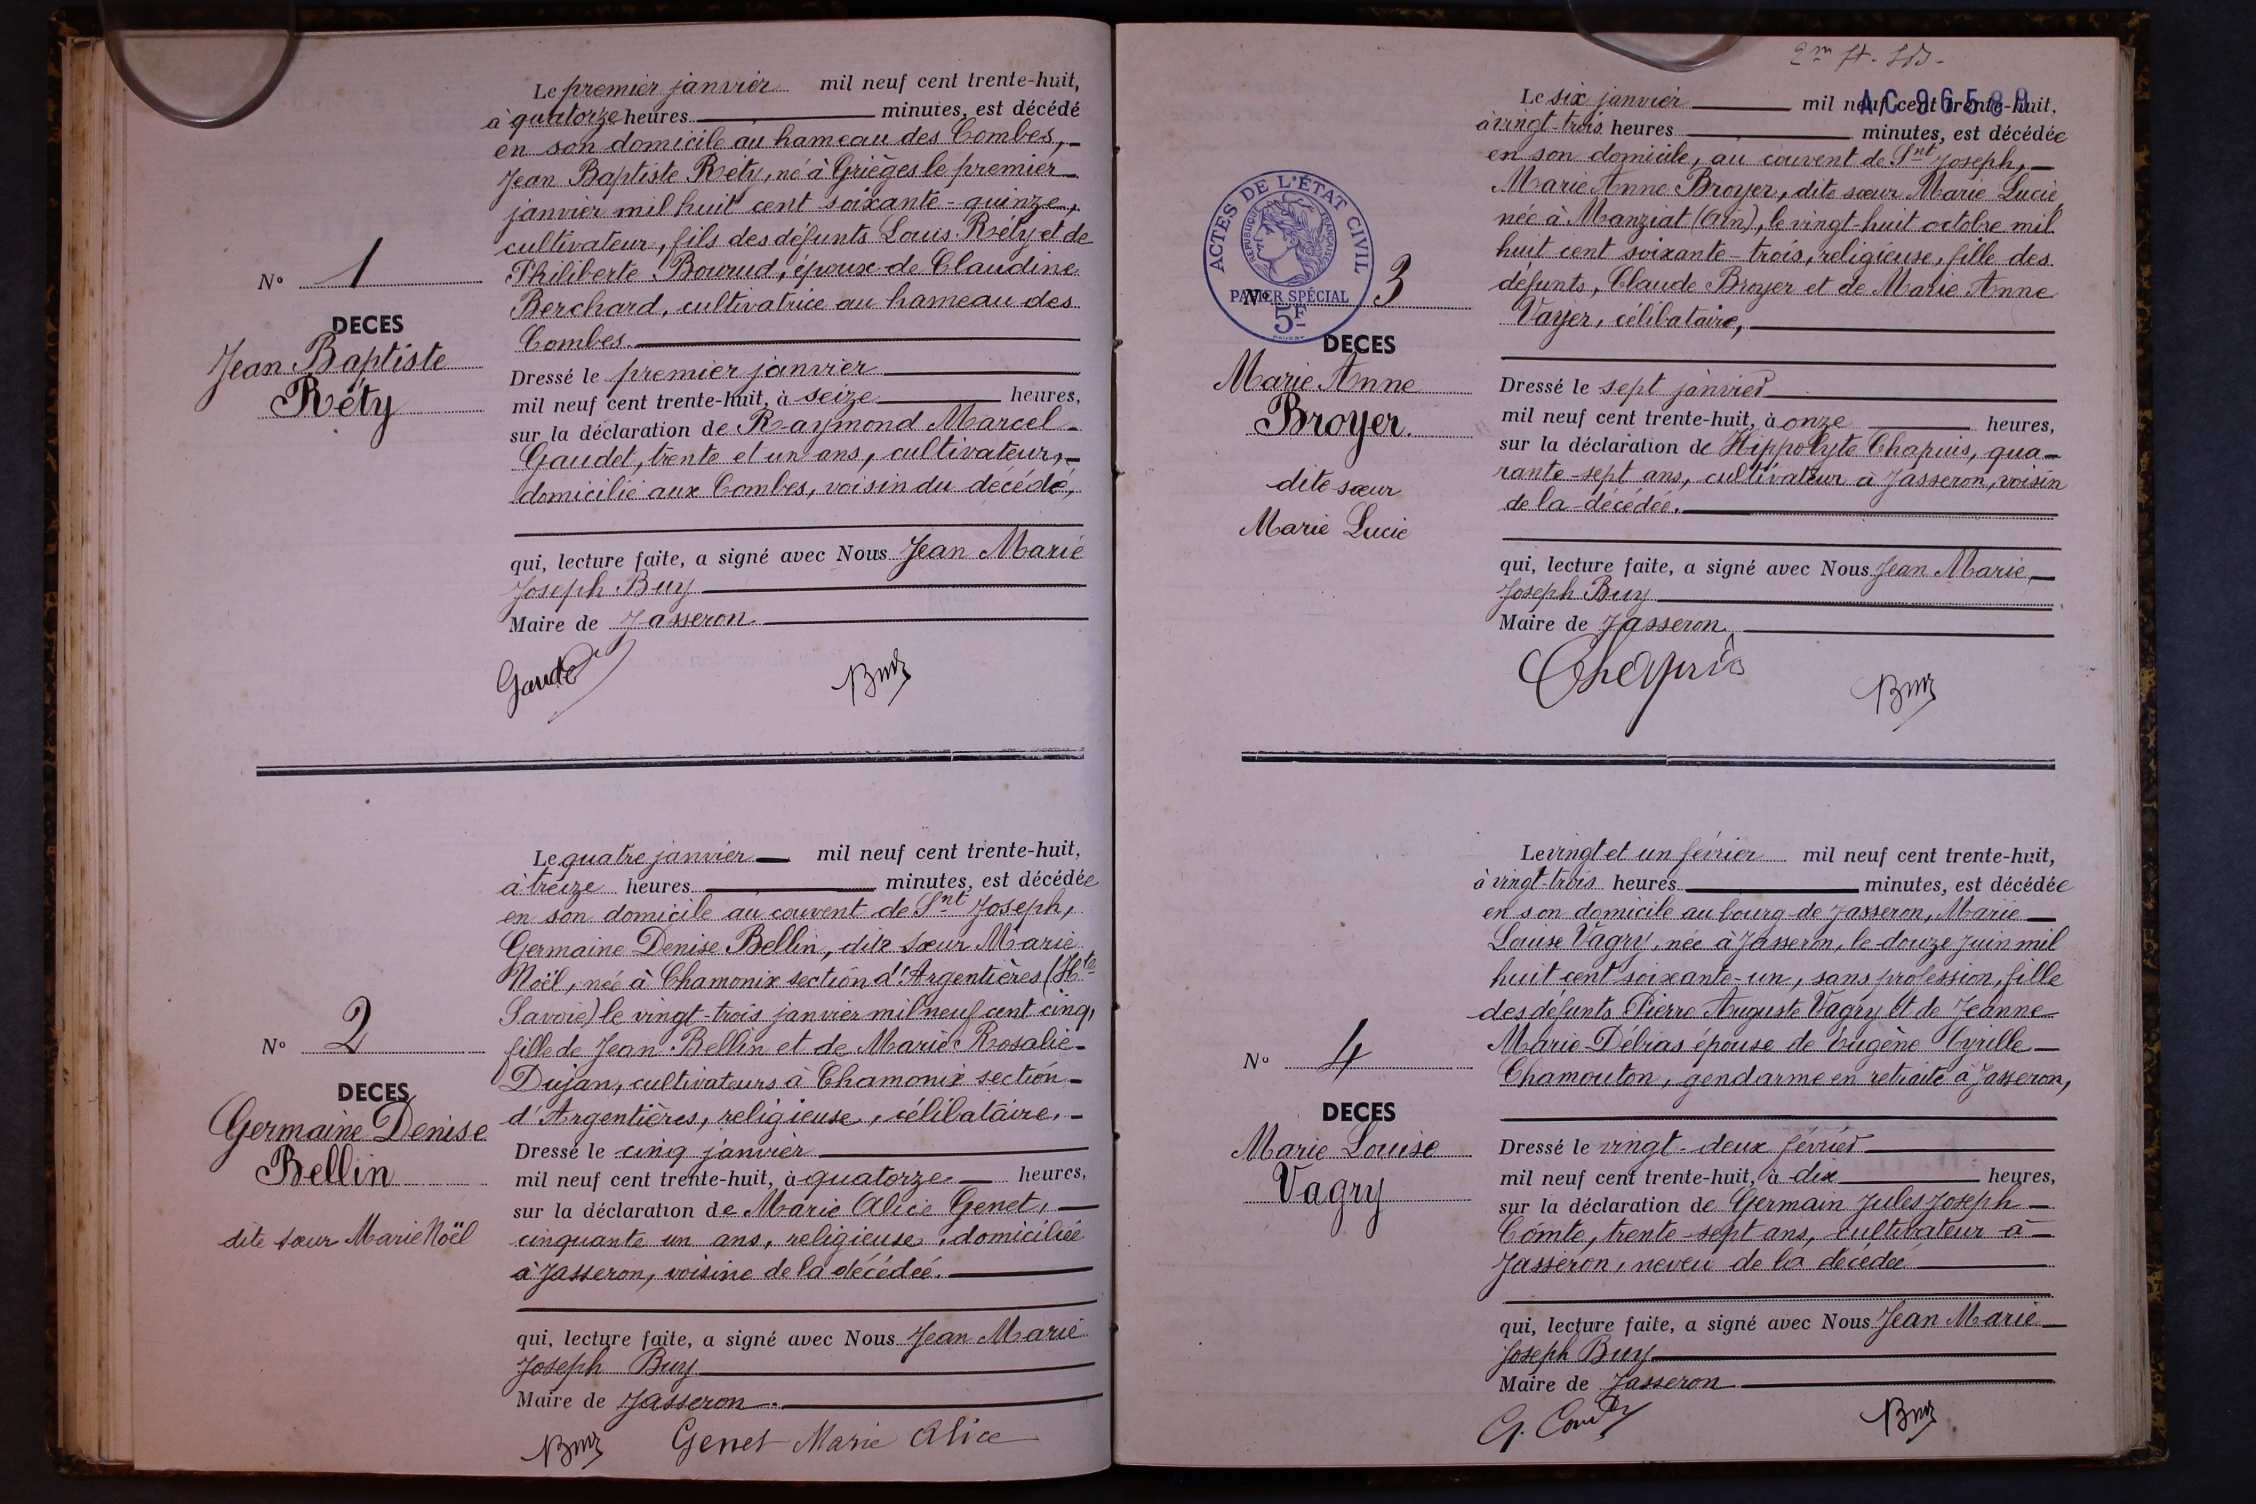 Le premier janvier mil neuf cent trente-huit,
à quatorze heures minutes, est décédé
en son domicile au hameau des Combes,
Jean Baptiste Réty, né à Grièges le premier
janvier mil huit cent soixante-quinze,
cultivateur, fils des défunts Louis Réty et de
Philiberte Bourud, époux de Claudine
Berchard, cultivatrice au hameau des
Combes.
N° 1
DECES
Jean Baptiste
Réty
Dressé le premier janvier
mil neuf cent trente-huit, à seize heures,
sur la déclaration de Raymond Marcel
Gaudet, trente et un ans, cultivateur,
domicilié aux Combes, voisin du décédé,
qui, lecture faite, a signé avec Nous Jean Marie
Joseph Buy
Maire de Jasseron
Gaudet
Buy
Le quatre janvier mil neuf cent trente-huit,
à treize heures minutes, est décédée
en son domicile au couvent de Snt Joseph,
Germaine Denise Bellin, dite sœur Marie
Noël, née à Chamonix section d'Argentières (Hte
Savoie) le vingt-trois janvier mil neuf cent cinq,
fille de Jean Bellin et de Marie Rosalie
Dujan, cultivateurs à Chamonix section
d'Argentières, religieuse, célibataire,
N° 2
DECES
Germaine Denise
Bellin
dite sœur Marie Noël
Dressé le cinq janvier
mil neuf cent trente-huit, à quatorze heures,
sur la déclaration de Marie Alice Genet,
cinquante un ans, religieuse, domiciliée
à Jasseron, voisine de la décédée.
qui, lecture faite, a signé avec Nous Jean Marie
Joseph Buy
Maire de Jasseron.
Buy
Genet Marie Alice
AC 96589
Le six janvier mil neuf cent trente-huit,
à vingt-trois heures minutes, est décédée
en son domicile, au couvent de Snt Joseph,
Marie Anne Broyer, dite sœur Marie Lucie,
née à Manziat (Ain), le vingt-huit octobre mil
huit cent soixante-trois, religieuse, fille des
défunts, Claude Broyer et de Marie Anne
Vayer, célibataire,
ACTES DE L'ÉTAT CIVIL
RÉPUBLIQUE FRANÇAISE
PAPIER SPÉCIAL
5F
N° 3
DECES
Marie Anne
Broyer.
dite sœur
Marie Lucie
Dressé le sept janvier
mil neuf cent trente-huit, à onze heures,
sur la déclaration de Hippolyte Chapuis, qua-
rante-sept ans, cultivateur à Jasseron, voisin
de la décédée.
qui, lecture faite, a signé avec Nous Jean Marie
Joseph Buy
Maire de Jasseron
Chapuis
Buy
Le vingt et un février mil neuf cent trente-huit,
à vingt-trois heures minutes, est décédée
en son domicile au bourg de Jasseron, Marie
Louise Vagry, née à Jasseron, le douze juin mil
huit cent soixante-un, sans profession, fille
des défunts Pierre Auguste Vagry et de Jeanne
Marie Débias épouse de Eugène Cyrille
Chamouton, gendarme en retraite à Jasseron,
N° 4
DECES
Marie Louise
Vagry
Dressé le vingt-deux février
mil neuf cent trente-huit, à dix heures,
sur la déclaration de Germain Jules Joseph
Comte, trente-sept ans, cultivateur à
Jasseron, neveu de la décédée
qui, lecture faite, a signé avec Nous Jean Marie
Joseph Buy
Maire de Jasseron
G. Comte
Buy